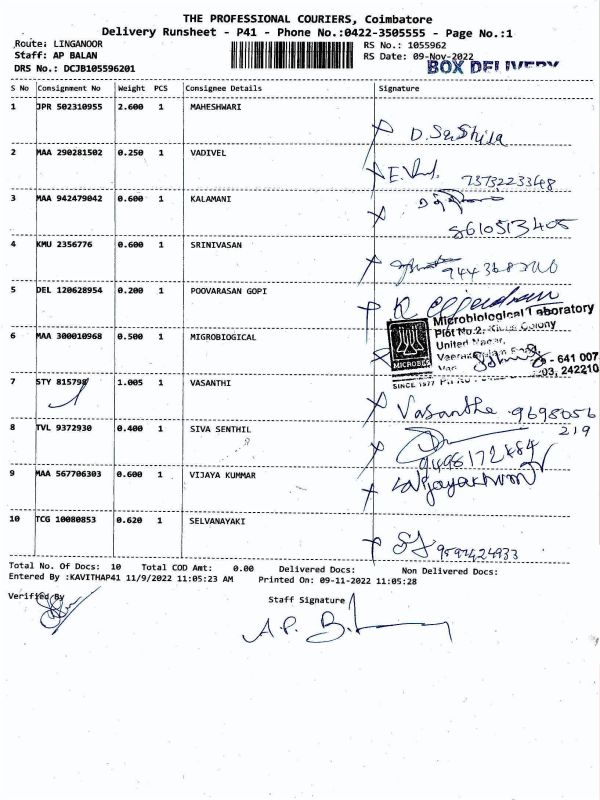 THE PROFESSIONAL COURIERS, Coimbatore
Delivery Runsheet - P41 - Phone No.:0422-3505555 - Page No.:1
Route: LINGANOOR RS No.: 1055962
Staff: AP BALAN RS Date: 09-Nov-2022
DRS No.: DCJB105596201 BOX DELIVERY
S No Consignment No Weight PCS Consignee Details Signature
1 JPR 502310955 2.600 1 MAHESHWARI
D. Sashila
2 MAA 290281502 0.250 1 VADIVEL
7373223348
3 MAA 942479042 0.600 1 KALAMANI
8610513405
4 KMU 2356776 0.600 1 SRINIVASAN
5 DEL 120628954 0.200 1 POOVARASAN GOPI
Microbiological Laboratory
Plot No.2, Colony
6 MAA 300010968 0.500 1 MIGROBIOGICAL
United Nagar,
- 641 007
MICROBES
SINCE 1977
03, 242210
7 STY 815798 1.005 1 VASANTHI
Vasantha 9698056
219
8 TVL 9372930 0.400 1 SIVA SENTHIL
9498172484
9 MAA 567706303 0.600 1 VIJAYA KUMMAR
10 TCG 10080853 0.620 1 SELVANAYAKI
9597424933
Total No. Of Docs: 10 Total COD Amt: 0.00 Delivered Docs: Non Delivered Docs:
Entered By :KAVITHAP41 11/9/2022 11:05:23 AM Printed On: 09-11-2022 11:05:28
Verified By Staff Signature
A.P.